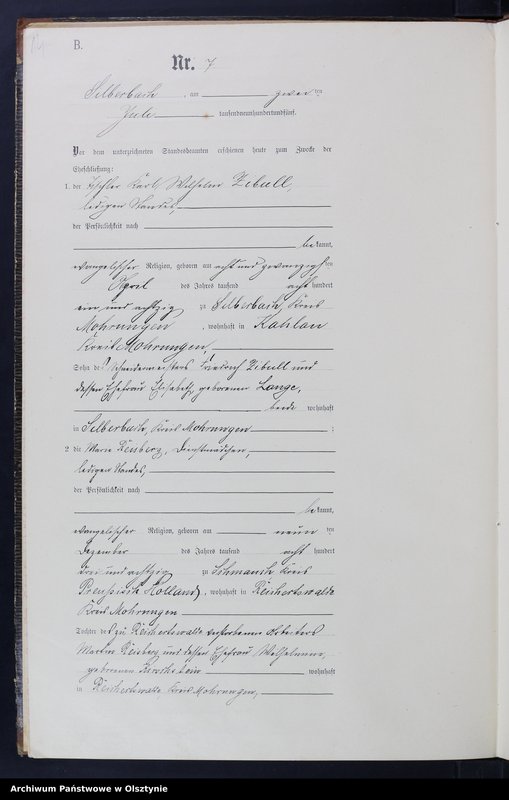 B.
Nr. 7
Silberbach, am zweiten
Juli tausendneunhundertundfünf.
Vor dem unterzeichneten Standesbeamten erschienen heute zum Zwecke der
Eheschließung:
1. der Tischler Karl Wilhelm Zibull,
ledigen Standes,
der Persönlichkeit nach
bekannt,
evangelischer Religion, geboren am acht und zwanzigsten
April des Jahres tausend acht hundert
ein und achtzig zu Silberbach, Kreis
Mohrungen, wohnhaft in Kahlau
Kreis Mohrungen,
Sohn des Schneidermeisters Friedrich Zibull und
dessen Ehefrau Elisabeth geborenen Lange,
beide wohnhaft
in Silberbach, Kreis Mohrungen :
2 die Marie Reisberg, Dienstmädchen,
ledigen Standes,
der Persönlichkeit nach
bekannt,
evangelischer Religion, geboren am neunten
Dezember des Jahres tausend acht hundert
drei und achtzig zu Kreis
Preußisch Holland, wohnhaft in Reichertswalde
Kreis Mohrungen
Tochter des zu Reichertswalde verstorbenen Arbeiters
Martin Reisberg und dessen Ehefrau Wilhelmine,
geborenen wohnhaft
in Reichertswalde Kreis Mohrungen,
Archiwum Państwowe w Olsztynie